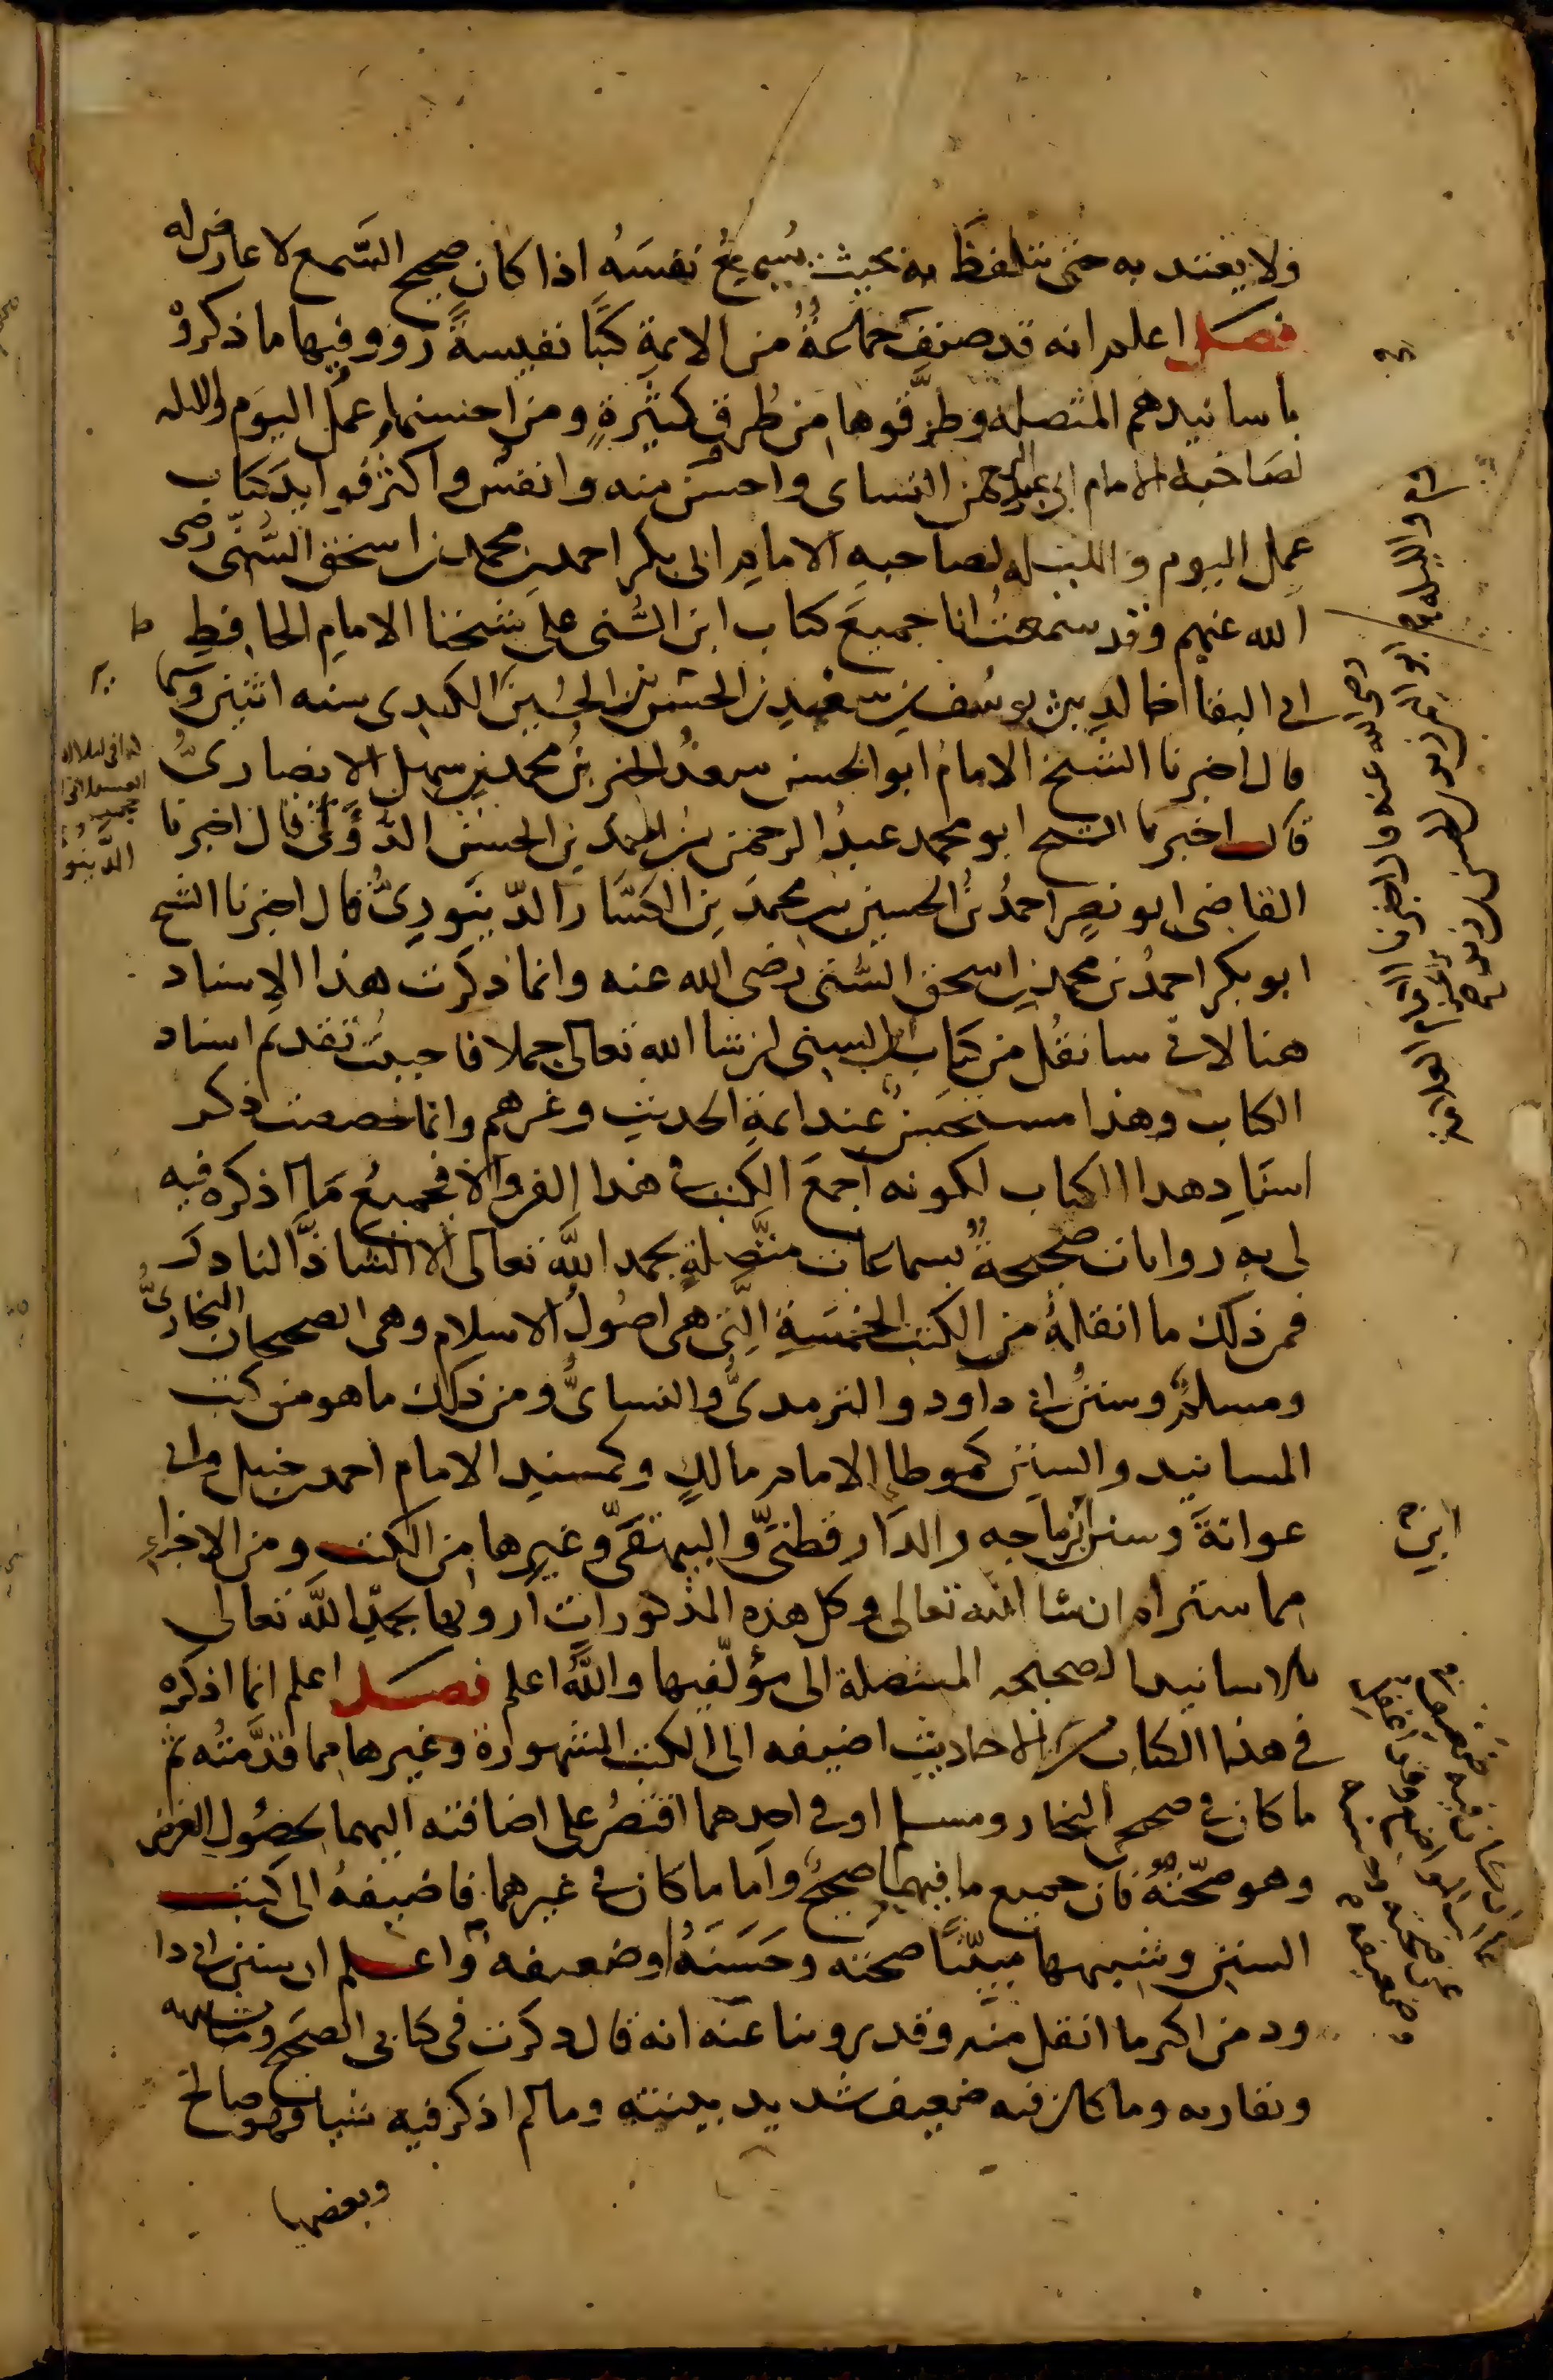 ولا يعتد به حتى يتلفظَ به بحيث يُسمِعُ نفسَهُ اذا كان صحيح السَّمع لا عارض له
فصل اعلم انه قد صنف جماعةٌ من الايمةِ كتبًا نفيسةً رووا فيها ما ذكروه
باسانيدهم المتصله وطرَّقوها من طُرقٍ كثيرةٍ ومن احسنها عمل اليوم والليله
لصاحبه الامام ابي عبد الرحمن النساى واحسن منه وانفس واكثر فوايد كتاب
عمل اليوم والليله لصاحبه الامام ابى بكر احمد بن محمد بن اسحق السُّنّى رضى
الله عنهم وقد سمعتُ انا جميعَ كتاب ابن السُّنى على شيخنا الامام الحافظ
ابى البقا خالدِ بن يوسُف بن سَعْدِ بن الحسن بن الحُسَين الكبدى سنه اثنين وستما
قال اخبرنا الشيخ الامام ابو الحسن سعدُ الخير بنُ محمد بن سهل الانصارىُّ
قال اخبرنا الشيخ ابو محمد عبدُ الرحمن بن احمد بن الحسن الدُّونى قال اخبرنا
القاضى ابو نصر احمدُ بنُ الحسين بن محمد بن الكسَّار الدّينَورىُّ قال اخبرنا الشيخ
ابو بكر احمدُ بن محمد بن اسحق السُّنى رضى الله عنه وانما ذكرت هذا الاسناد
هنا لانى سانقُل من كتاب ابن السنى ان شا الله تعالى جملا فاحببتُ تقديم اسناد
الكتاب وهذا مستحسنٌ عند ايمة الحديث وغيرهم وانما خصصت ذكر
اسنادِ هذا الكتاب لكونه اجمعَ الكتب فى هذا الفن والا فجميعُ ما اذكره فيه
لى به روايات صحيحةٌ بسماعات متَّصلةٍ بحمد اللَّه تعالى الا الشاذَّ النادرَ
فمن ذلك ما انقلهُ من الكتب الخمسَةِ الَّتى هى اصُولُ الاسلام وهى الصحيحان البخارىُّ
ومسلمٌ وسننُ ابى داود والترمدىُّ والنساىُّ ومن ذلك ما هو من كتب
المسانيد والسنن كموطا الامام مالكٍ وكمسند الامام احمد بن حنبل وابى
عوانةَ وسنن ابن ماجه والدَارقطنىّ والبيهقىّ وغيرها من الكتب ومن الاجزاء
مما ستراه ان شا اللَّه تعالى وكل هذه المذكورات ارويها بحمد اللَّه تعالى
بالاسانيد الصحيحه المتصلة الى مؤلّفيها واللَّه اعلم فصل اعلم انما اذكره
فى هذا الكتاب من الاحاديث اضيفه الى الكتب المشهورة وغيرها مما قدَّمتُه ثم
ما كان فى صحيح البخارى ومسلم او فى احدهما اقتصرُ على اضافته اليهما لحصُول الغرض
وهو صحّتهُ فان جميع ما فيهما صحيحٌ واما ما كان فى غيرهما فاضيفهُ الى كتب
السنن وشبهها مبيّنًا صحته وحَسَنَهُ او ضعيفه واعلم ان سنن ابى دا
ود من اكبر ما انقل منه وقد روينا عنه انه قال ذكرت فى كتابى الصحيح وما يشبهه
ويقاربه وما كان فيه ضعيف شديد بينته وما لم اذكر فيه شيا فهو صالح
وبعضها